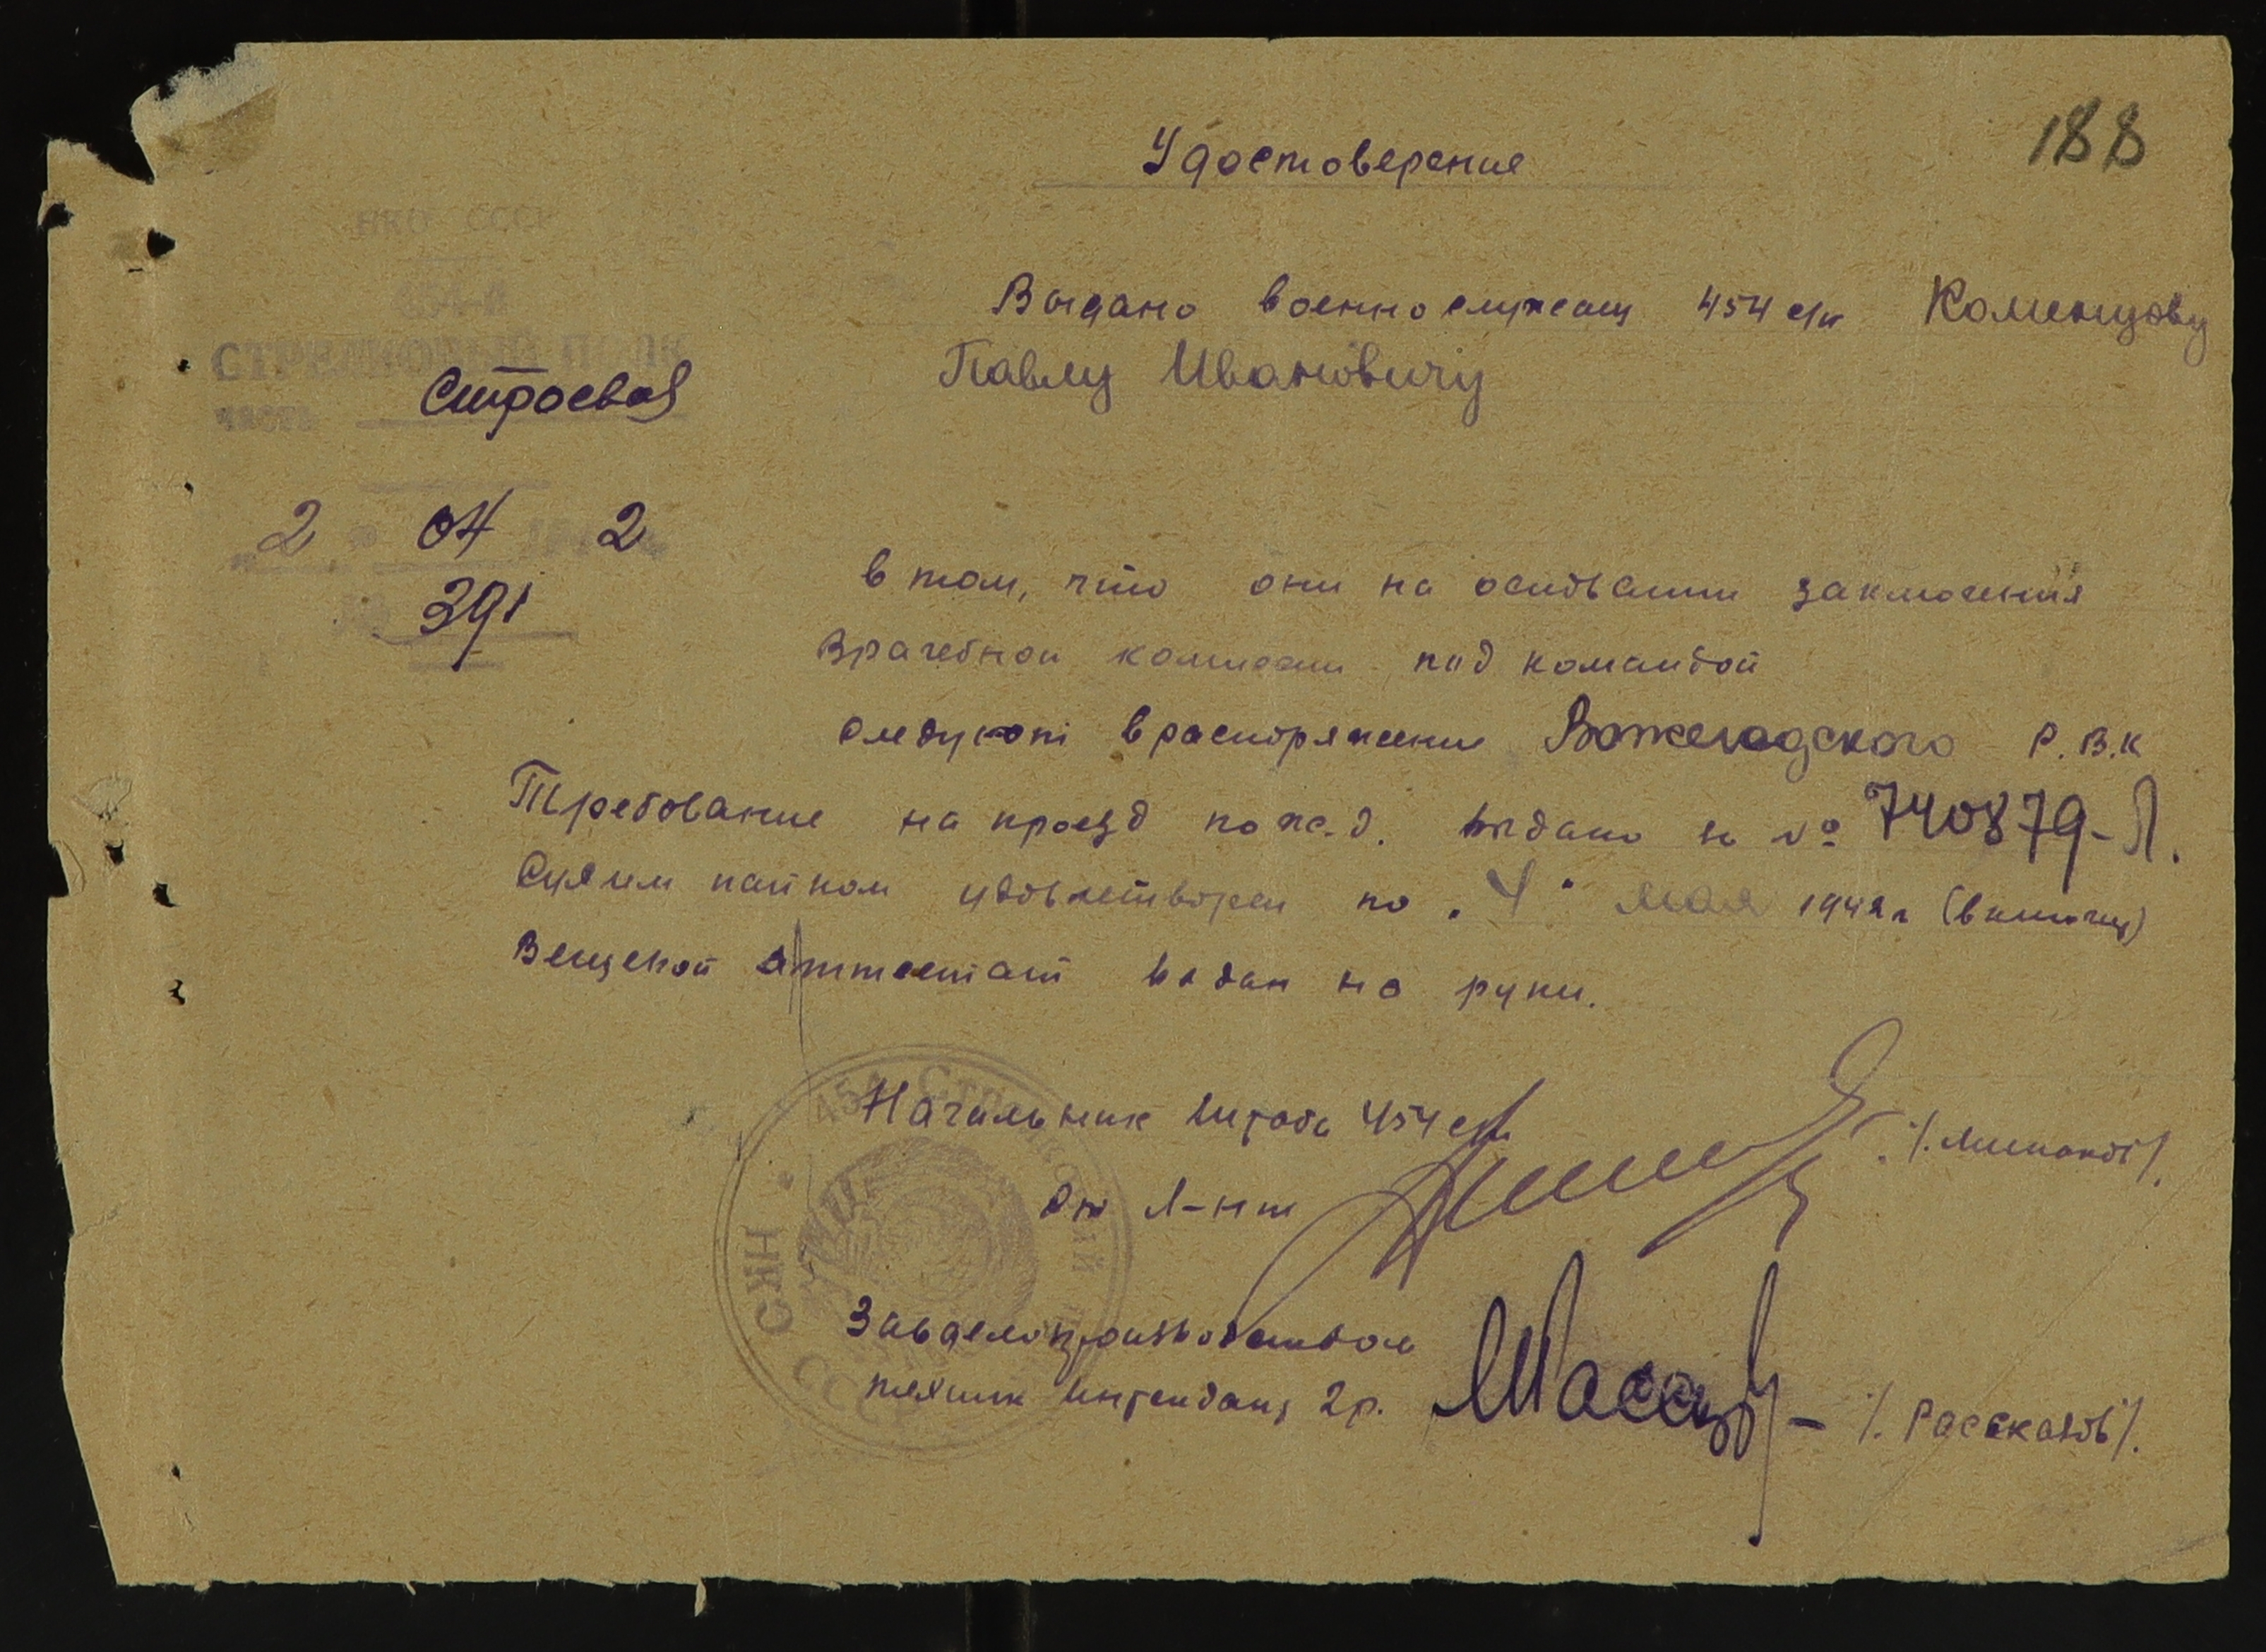 188
Удостоверение
НКО СССР
454-й
СТРЕЛКОВЫЙ ПОЛК
часть Строевая
2 04 2
391
Выдано военнослужащ 454 с/п Коменцову
Павлу Ивановичу
в том, что они на основании заключения
врачебной комиссии под командой
следуют в распоряжение Вожегодского Р.В.К
Требование на проезд по ж.д. выдано за № 740879-Л.
Сухим пайком удовлетворен по "4" мая 1942 г (включ)
Вещевой аттестат выдан на руки.
Начальник Штаба 454 с/п
л-нт
Завделопроизводством
техник интендант 2р. /. Рассказов/.
454 Стрелковый
НКО СССР